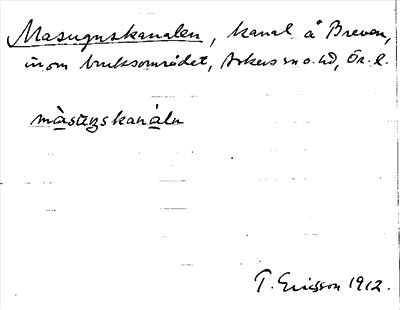 Masugnskanalen, kanal å Breven,
inom bruksområdet, Askers sn o. hd, Ör. l.
màsugskanáln
T. Ericsson 1912.